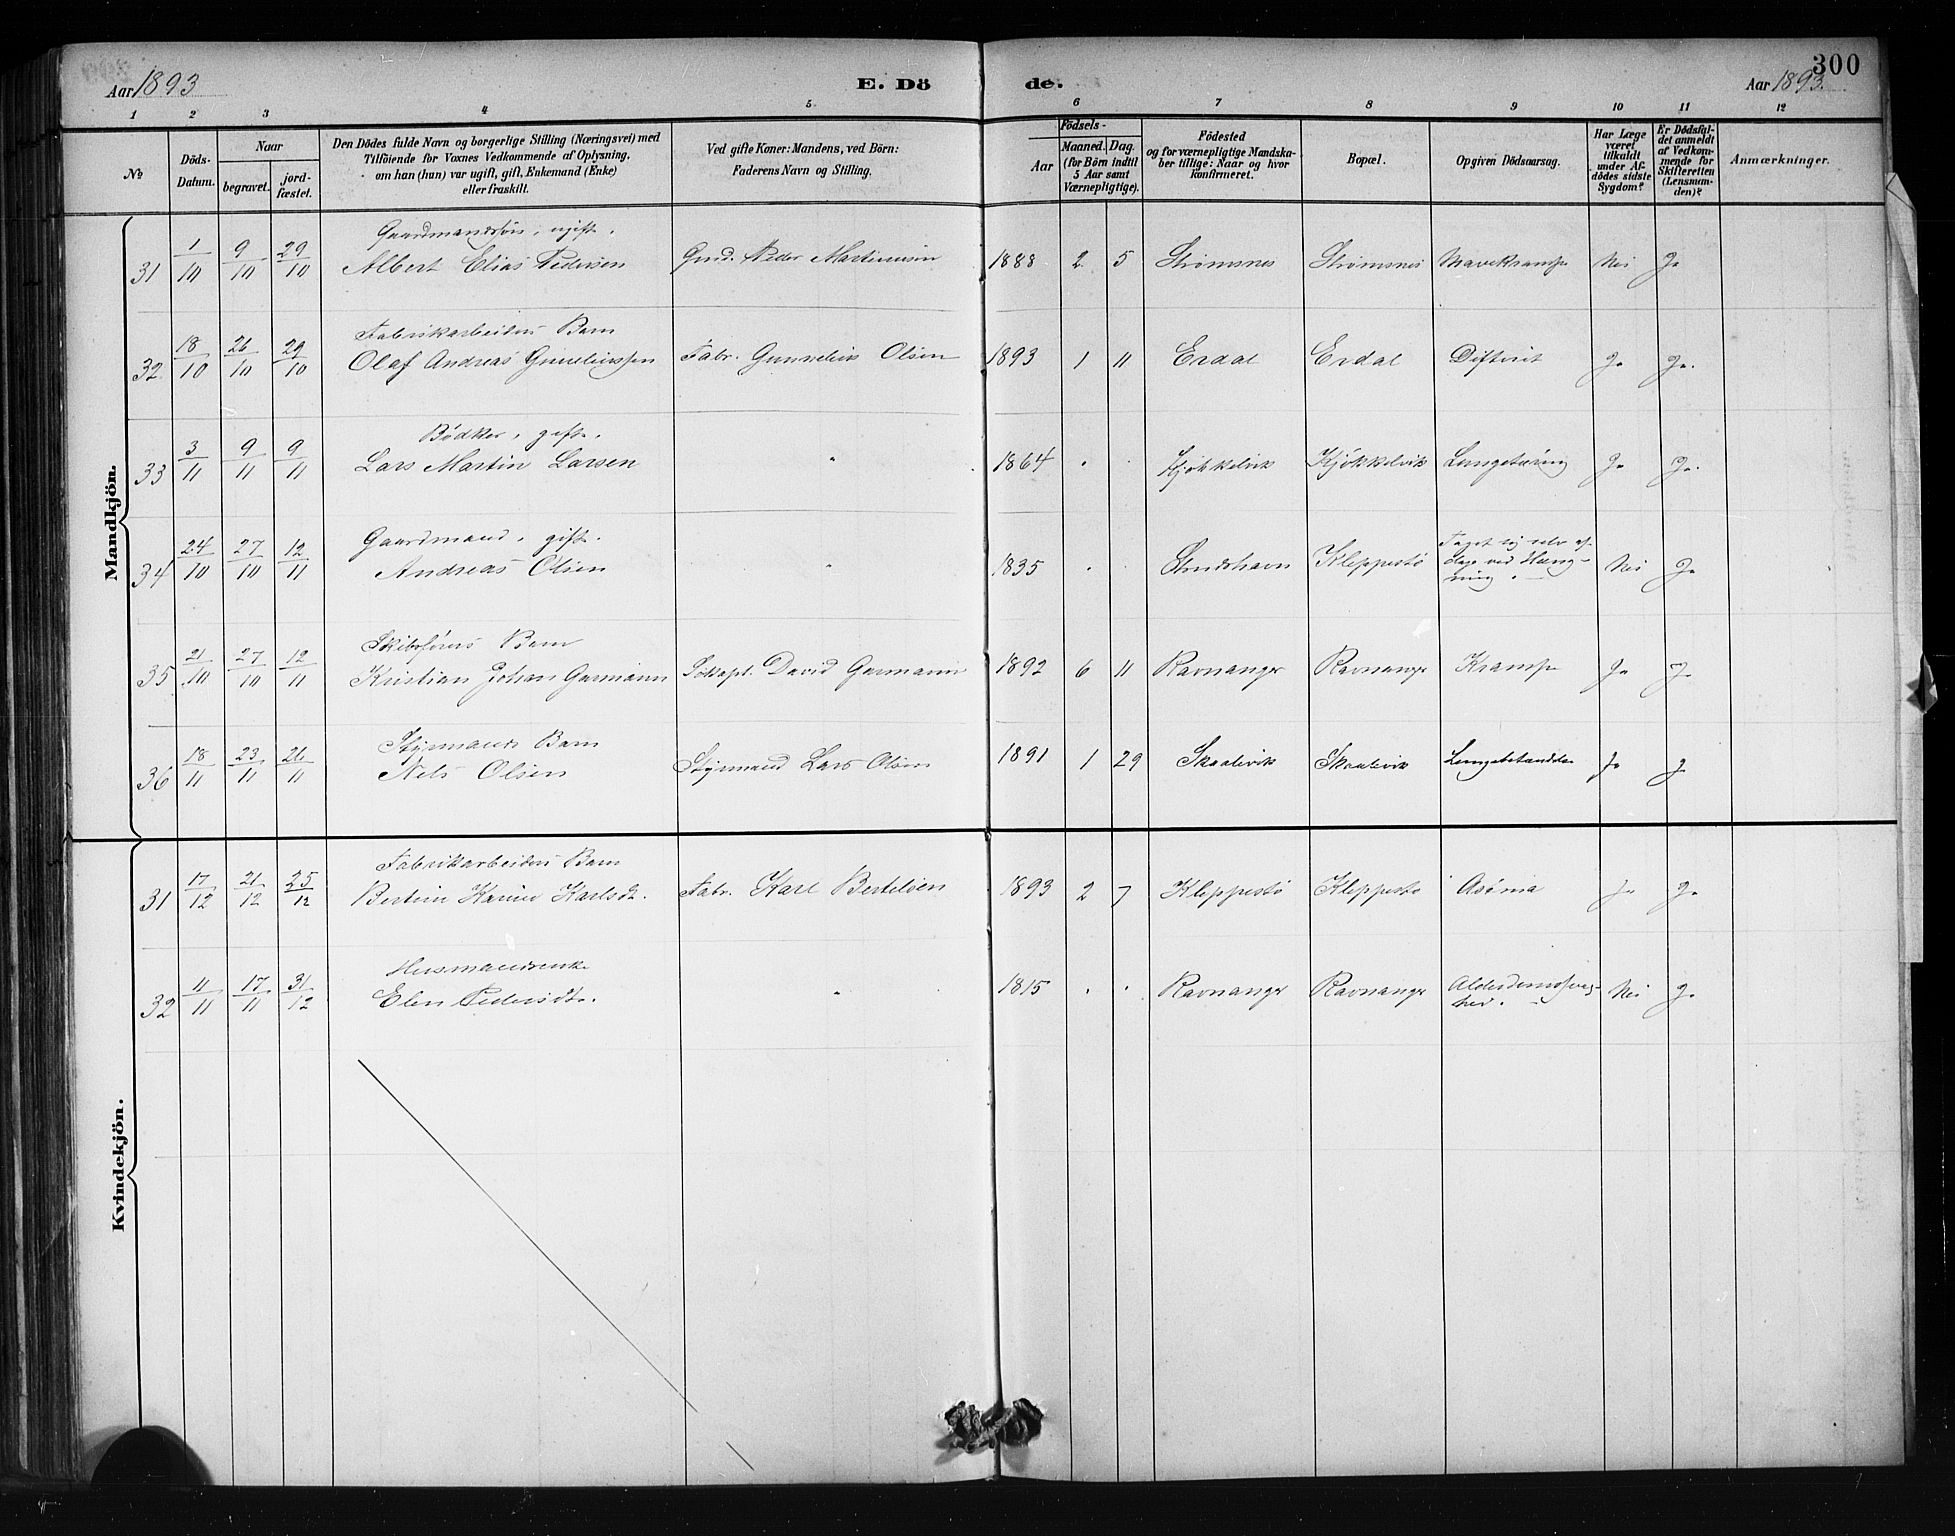 300
Aar 1893
E. Dö
de.
Aar 1893.
1 2 3 4 5 6 7 8 9 10 11 12
№
Döds-
Datum.
Naar
begravet.
jord-
fæstet.
Den Dödes fulde Navn og borgerlige Stilling (Næringsvei) med
Tilföiende for Voxnes Vedkommende af Oplysning,
om han (hun) var ugift, gift, Enkemand (Enke)
eller fraskilt.
Ved gifte Koner: Mandens, ved Börn:
Faderens Navn og Stilling.
Födsels-
Aar
Maaned.
Dag.
(for Börn indtil
5 Aar samt
Værnepligtige).
Födested
og for værnepligtige Mandska-
ber tillige: Naar og hvor
konfirmeret.
Bopæl.
Opgiven Dödsaarsag.
Har Læge
været
tilkaldt
under Af-
dödes sidste
Sygdom?
Er Dödsfal-
det anmeldt
af Vedkom-
mende for
Skifteretten
(Lensman-
den)?
Anmærkninger.
Mandkjön.
Gaardmandssøn, ugift.
31 1/10 9/10 29/10 Albert Elias Pedersen Gmd. Peder Martinusen 1888 2 5 Strømsnes Strømsnes Mavekrampe Nei Ja
Fabrikarbeiders Barn
32 18/10 26/10 29/10 Olaf Andreas Gunneliussen Fabr. Gunnelius Olsen 1893 1 11 Erdal Erdal Difterit Ja Ja.
Bødker, gift.
33 3/11 9/11 9/11 Lars Martin Larsen " 1864 . . Kjøkkelvik Kjøkkelvik Lungetæring Ja Ja.
Gaardmand, gift.
34 24/10 27/10 12/11 Andreas Olsen " 1835 . . Strudshavn Kleppestø Taget sig selv af
Dage ved Hæng-
ning. Nei Ja
Skibsførers Barn
35 21/10 27/10 12/11 Kristian Johan Garmann David Garmann 1892 6 11 Ravnanger Ravnange Krampe Ja J.
Styrmands Barn
36 18/11 23/11 26/11 Nels Olsen Styrmand Lars Olsen 1891 1 29 Skaalevik Skaalevik Lungebetændelse Ja J.
Kvindekjön.
Fabrikarbeiders Barn
31 17/12 21/12 25/12 Bertine Karine Karlsdt. Fabr. Karl Bertelsen 1893 2 7 Kleppestø Kleppestø Asthma Ja Ja
Husmandsenke
32 11/11 17/11 31/12 Elen Pedersdt. " 1815 . . Ravnange Ravnange Alderdomssvag-
hed. Nei Ja